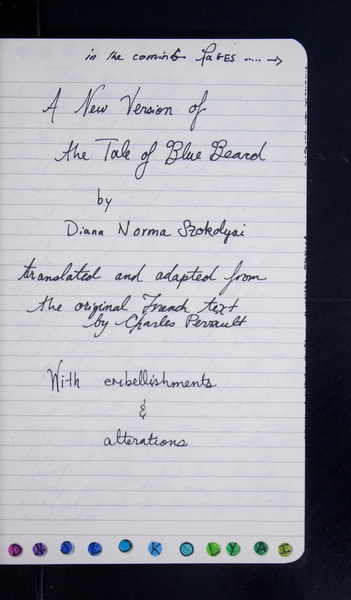 in the coming Pages .... →
A New Version of
the Tale of Blue Beard
by
Diana Norma Szokolyai
translated and adapted from
the original French text
by Charles Perrault
With embellishments
&
alterations
D N S Z O K O L Y A I